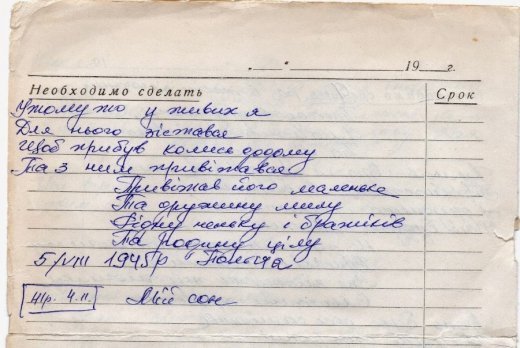 19 г.
Необходимо сделать Срок
Тому то у живих я
Для нього зістався
Щоб прибув колись додому
Та з ним привітався
Привітав його маленьке
Та дружину милу
Рідну неньку і братіків
Та родину цілу
5/VIII 1945р Польща
Мій сон